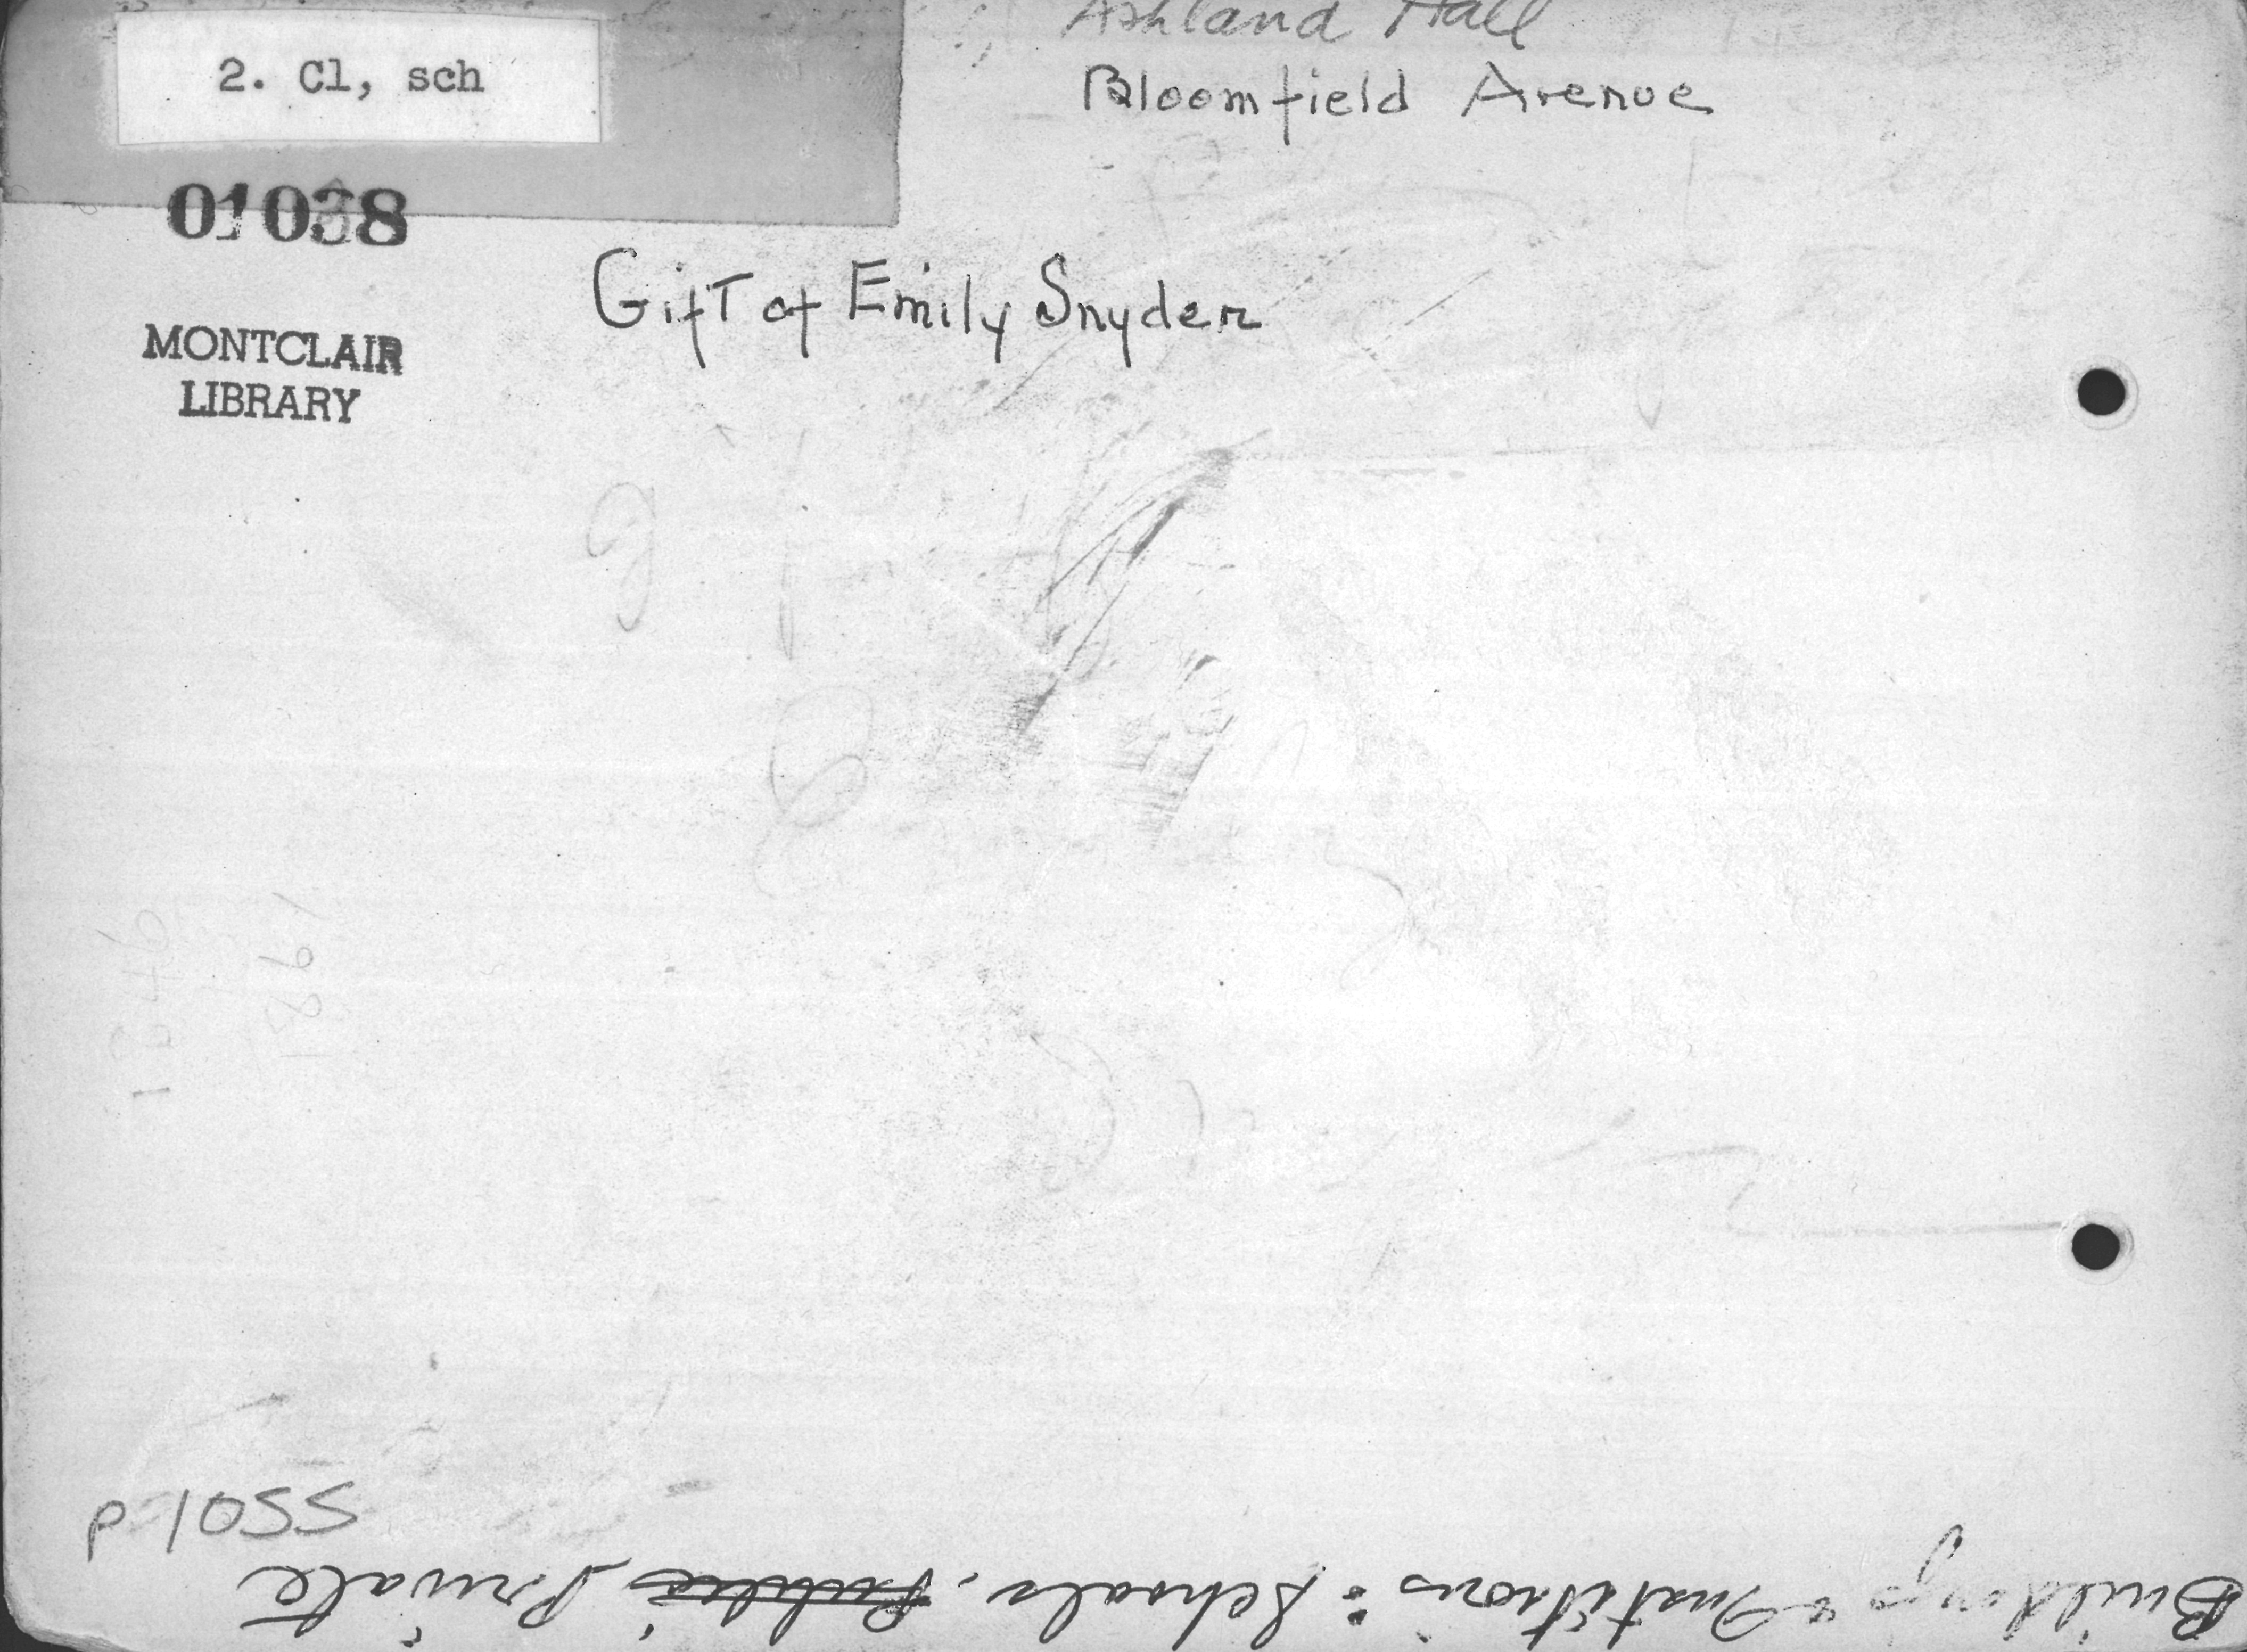 Ashland Hall
Bloomfield Avenue
2. Cl, sch
01038
Gift of Emily Snyder
MONTCLAIR
LIBRARY
1981
p 1055
Buildings & Institutions: Schools. Public, Private